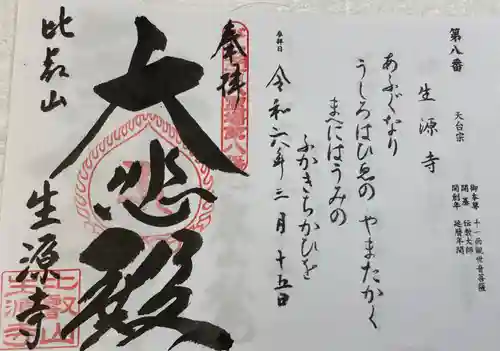 奉拝
大悲殿
比叡山
生源寺
第八番
生源寺
天台宗
御本尊 十一面観世音菩薩
開基 伝教大師
開創年 延暦年間
あふぐなり
うしろはひゑの やまたかく
まにはうみの
ふかきちかひを
参拝日
令和六年 三月 十五日